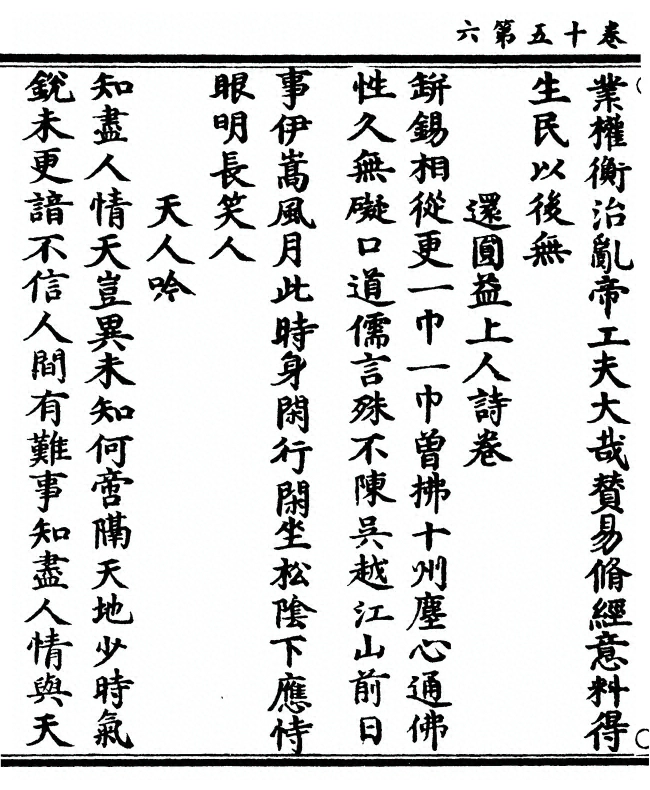 卷十五第六
業權衡治亂帝工夫大哉賛易脩經意料得
生民以後無
還圓益上人詩卷
缾錫相從更一巾一巾曾拂十州塵心通佛
性久無礙口道儒言殊不陳吳越江山前日
事伊嵩風月此時身閑行閑坐松陰下應恃
眼明長笑人
天人吟
知盡人情天豈異未知何啻隔天地少時氣
銳未更諳不信人間有難事知盡人情與天